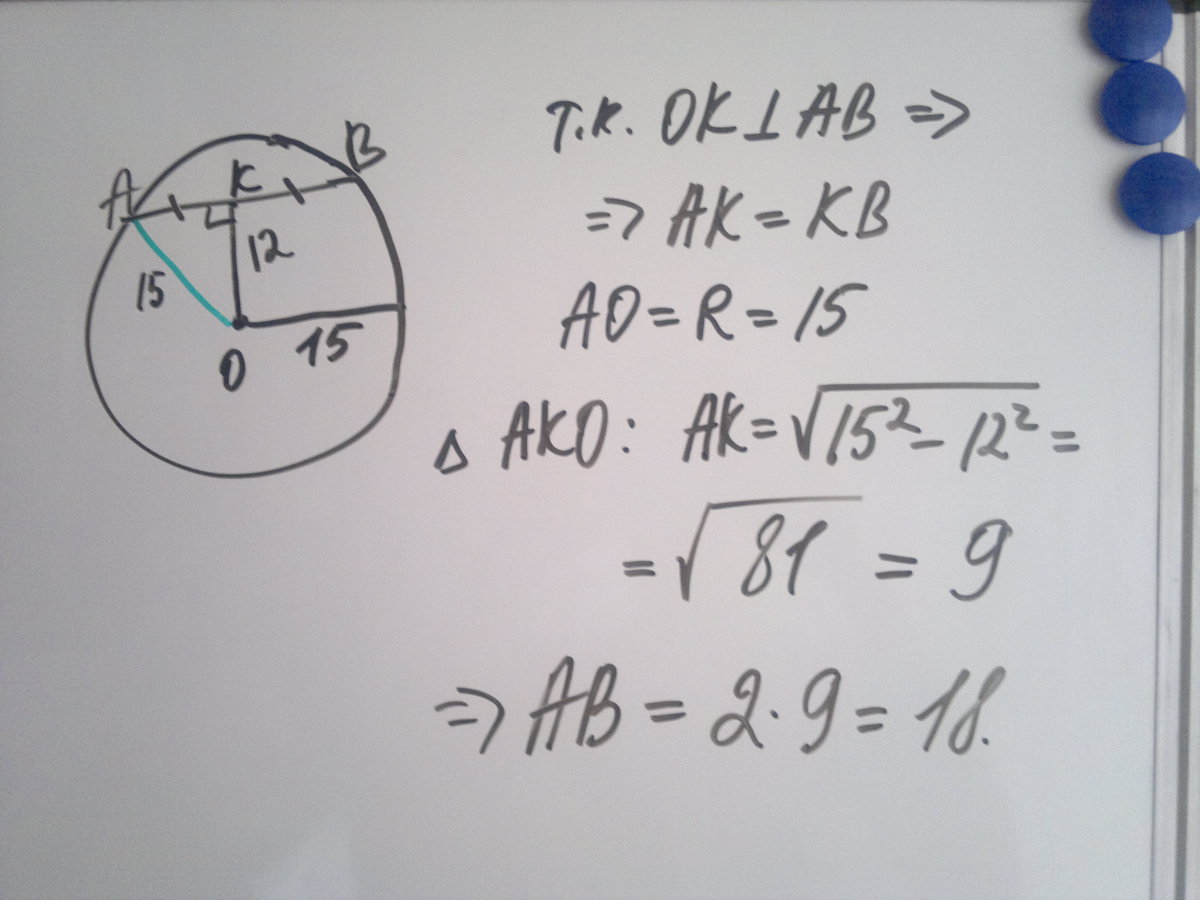 A
K
B
15
12
15
O
т.к. OK⊥AB =>
=> AK = KB
AO = R = 15
Δ AKO: AK = √(15² - 12²) =
= √81 = 9
=> AB = 2 · 9 = 18.